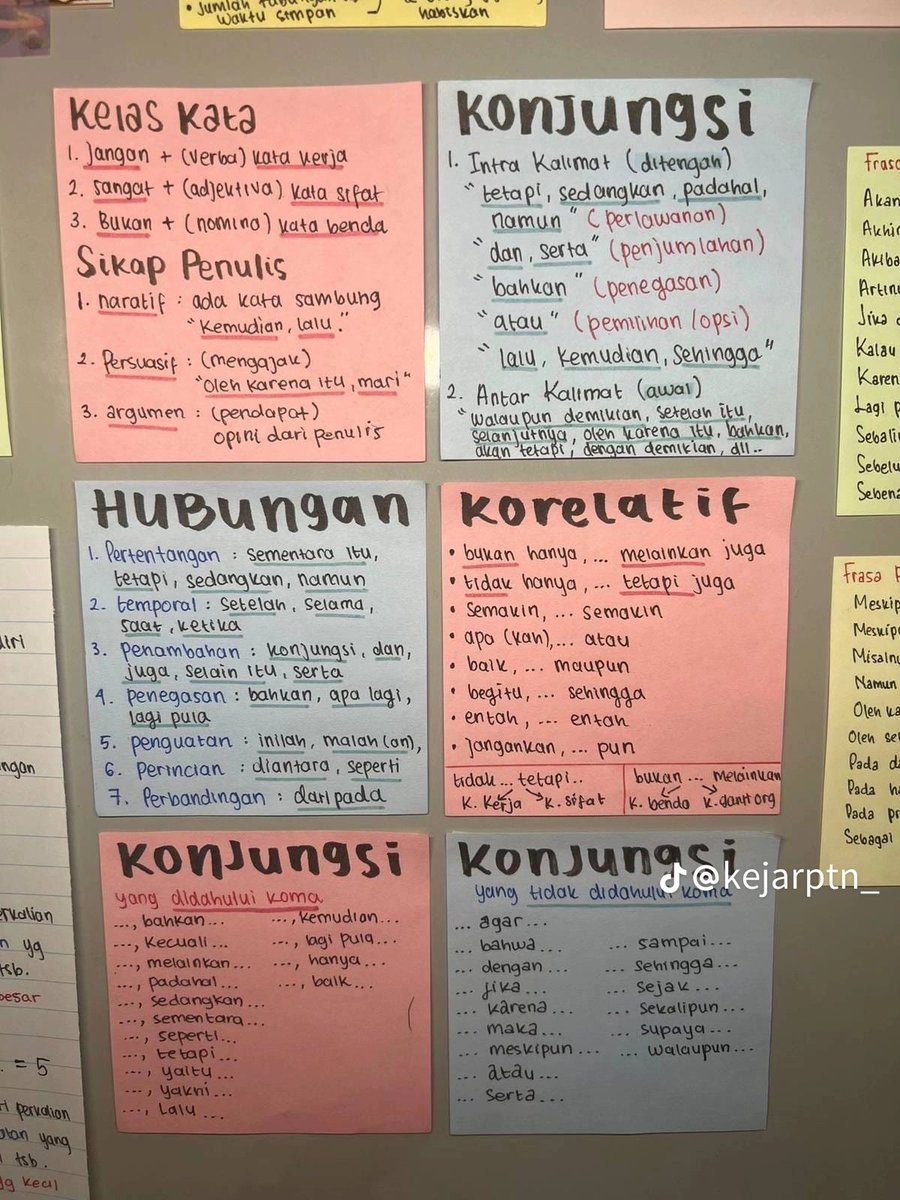 • Jumlah
waktu simpan
habiskan
Kelas Kata
1. Jangan + (verba) kata kerja
2. sangat + (adjektiva) kata sifat
3. Bukan + (nomina) kata benda
Sikap Penulis
1. naratif : ada kata sambung
"Kemudian, lalu."
2. Persuasif : (mengajak)
"Oleh karena itu, mari"
3. argumen : (pendapat)
opini dari penulis
KONJUNGSI
1. Intra Kalimat (ditengah)
"tetapi, sedangkan, padahal,
namun" (perlawanan)
"dan, serta" (penjumlahan)
"bahkan" (penegasan)
"atau" (pemilihan/opsi)
"lalu, kemudian, sehingga"
2. Antar Kalimat (awal)
"walaupun demikian, setelah itu,
selanjutnya, oleh karena itu, bahkan,
akan tetapi, dengan demikian, dll..
HUBUNGAN
1. Pertentangan : sementara itu,
tetapi, sedangkan, namun
2. temporal : setelah, selama,
saat, ketika
3. penambahan : konjungsi, dan,
juga, selain itu, serta
4. penegasan : bahkan, apa lagi,
lagi pula
5. penguatan : inilah, malah(an),
6. Perincian : diantara, seperti
7. Perbandingan : daripada
Korelatif
• bukan hanya, ... melainkan juga
• tidak hanya, ... tetapi juga
• semakin, ... semakin
• apa (kah),... atau
• baik, ... maupun
• begitu, ... sehingga
• entah, ... entah
• jangankan, ... pun
tidak... tetapi..
K. Kerja K. sifat
bukan ... melainkan
K. benda K. ganti org
KONJUNGSI
yang didahului koma
..., bahkan...
..., kecuali...
..., melainkan...
..., padahal...
..., sedangkan...
..., sementara...
..., seperti...
..., tetapi...
..., yaitu...
..., yakni...
..., Lalu ...
..., kemudian...
..., lagi pula...
..., hanya...
..., baik...
KONJUNGSI
yang tidak didahului koma
... agar...
... bahwa...
... dengan...
... jika...
... karena...
... maka...
... meskipun...
... atau...
... serta...
... sampai...
... sehingga...
... sejak...
... sekalipun...
... supaya...
... walaupun...
@kejarptn_
Akan
Jika
Kalau
Karen
Lagi p
Frasa
Namun
Oleh ka
Oleh se
Pada da
Pada ha
Pada pr
Sebagai
yg
tsb.
besar
= 5
perkalian
yang
tsb.
yg kecil